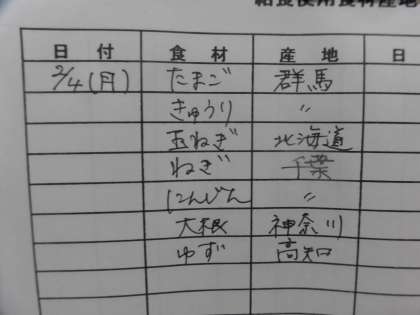 給食使用食材産地
日 付 食 材 産 地 日
2/4(月) たまご 群馬
きゅうり 〃
玉ねぎ 北海道
ねぎ 千葉
にんじん 〃
大根 神奈川
ゆず 高知